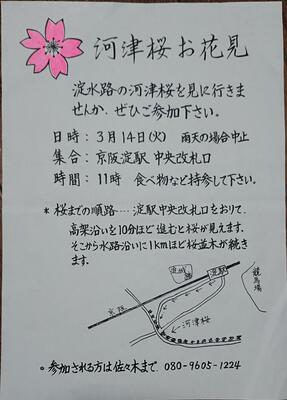 河津桜お花見
淀水路の河津桜を見に行きま
せんか、ぜひご参加下さい。
日時：3月14日(火) 雨天の場合中止
集合：京阪淀駅 中央改札口
時間：11時 食べ物など持参して下さい。
＊桜までの順路‥‥淀駅中央改札口をおりて、
高架沿いを10分ほど進むと桜が見えます。
そこから水路沿いに1kmほど桜並木が続き
ます。
淀城跡
淀駅
競馬場
京阪
河津桜
。参加される方は佐々木まで 080-9605-1224